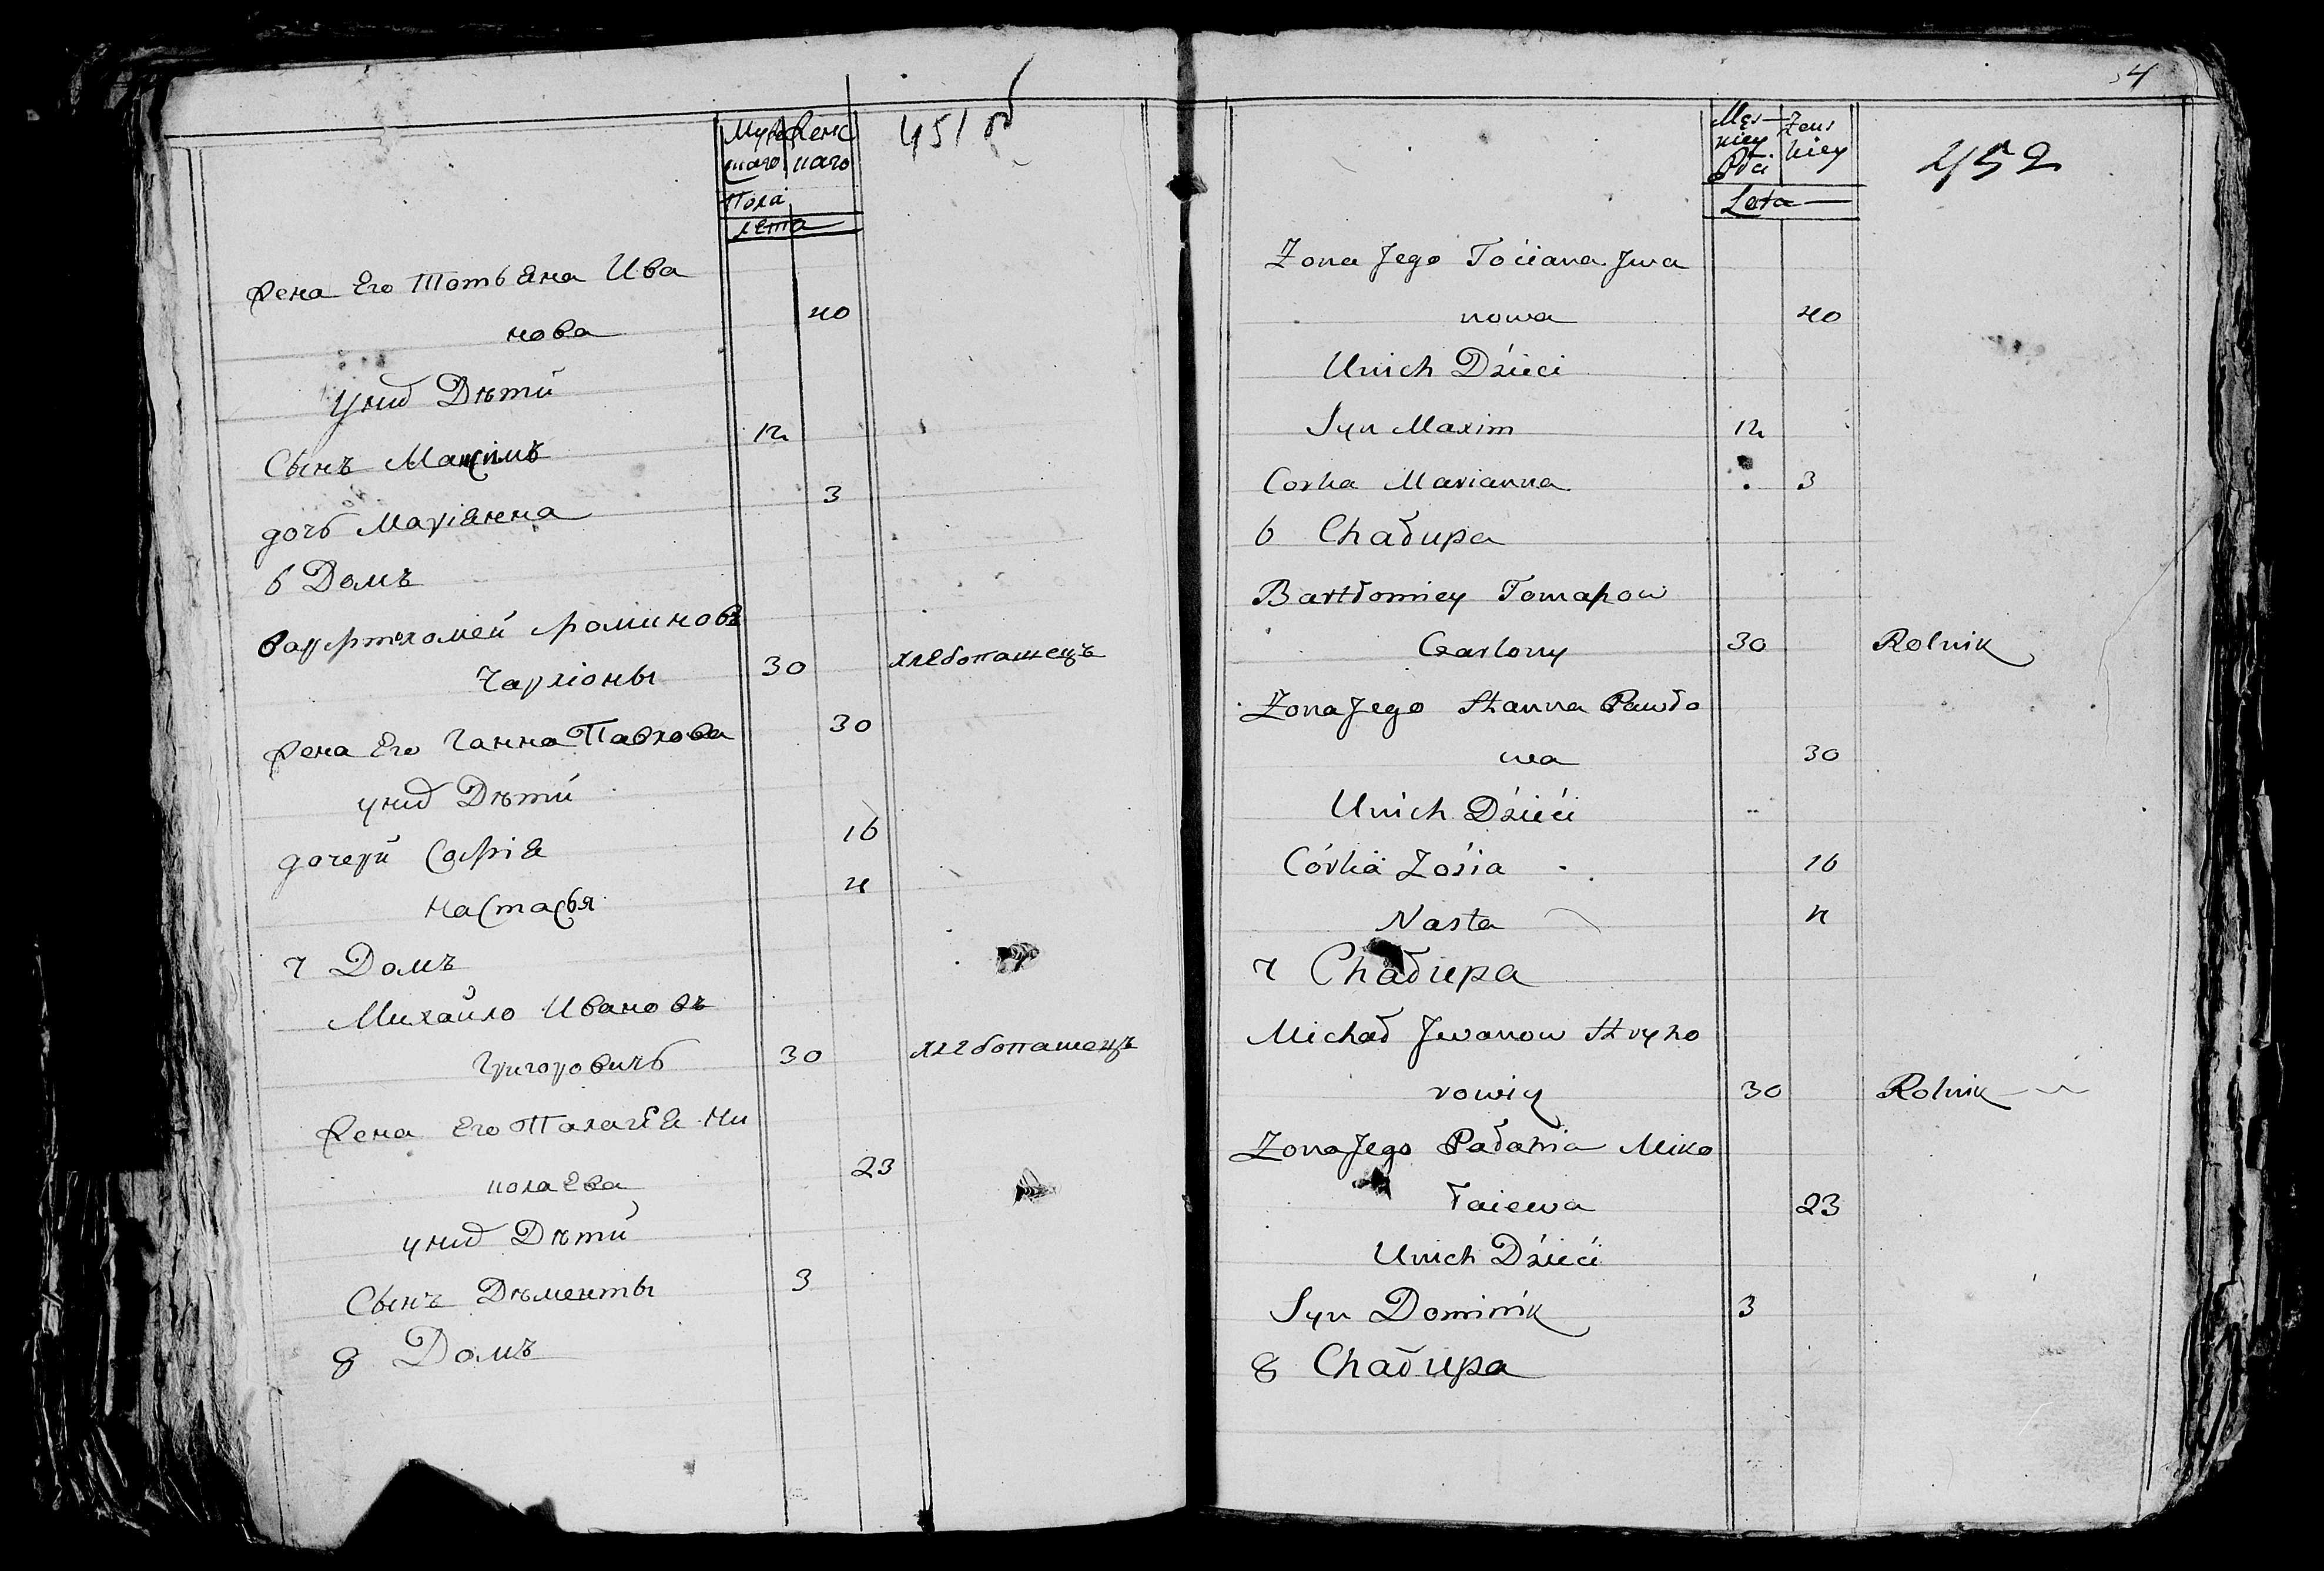 451 об
Мужескаго Женскаго
Пола
лета
Жена Его Тотьяна Ива
нова 40
Уних Дѣти
Сынъ Максимъ 12
дочь Маріянна 3
6 Домъ
Варфтоломей Фоминовъ
Чарліоны 30 хлебопашецъ
Жена Его Ганна Павлова 30
уних Дѣти
дочери Софія 16
Настасья 4
7 Домъ
Михайло Ивановъ
Григоровичъ 30 хлебопашецъ
Жена Его Палагея Ни
колаева 23
уних Дѣти
Сынъ Дѣменты 3
8 Домъ
4
Męskiey Żenskiey
Płci
Lata
452
Zona Jego Tóciana Jwa
nowa 40
Unich Dzieci
Syn Maxim 12
Corka Marianna 3
6 Chałupa
Bartłomiey Tomaszow
Czarlony 30 Rolnik
Zona Jego Hanna Pawło
wa 30
Unich Dzieći
Córka Zosia 16
Nasta 4
7 Chałupa
Michał Jwanow Hryho
rowicz 30 Rolnik
Zona Jego Pałahia Miko
łaiewa 23
Unich Dzieći
Syn Dominik 3
8 Chałupa